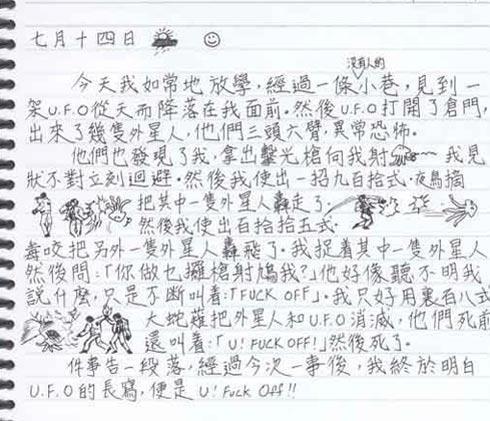 七月十四日
今天我如常地放學,經過一條沒有人的小巷,見到一
架U.F.O從天而降落在我面前。然後U.F.O打開了倉門,
出來了幾隻外星人,他們三頭六臂,異常恐怖。
他們也發現了我,拿出擊光槍向我射 我見
狀不對立刻迴避。然後我使出一招九百拾式·夜鳥摘
把其中一隻外星人轟走了
然後我使出百拾拾五式·
毒咬把另外一隻外星人轟飛了。我捉着其中一隻外星人
然後問:「你做乜攞槍射鳩我?」他好像聽不明我
說什麼,只是不斷叫着:「FUCK OFF」。我只好用裏百八式
大蛇薙把外星人和U.F.O消滅,他們死前
還叫着:「U! FUCK OFF!」然後死了。
件事告一段落,經過今次一事後,我終於明白
U.F.O的長寫,便是U! Fuck Off!!